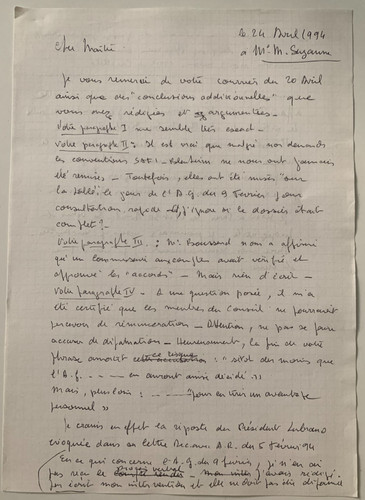 Le 24 Avril 1994
à Me M. Suzanne
Cher Maître
Je vous remercie de votre courrier du 20 Avril
ainsi que des "conclusions additionnelles" que
vous avez rédigées et argumentées.
Votre paragraphe I me semble très exact -
Votre paragraphe II : Il est vrai que malgré nos demandes
les conventions ne nous ont jamais
été remises - Toutefois, elles ont été mises "sur
la table" le jour de l'A.G. du 9 Février pour
consultation rapide et j'ignore si le dossier était
complet !
Votre paragraphe III : Mr Broussard nous a affirmé
qu'un commissaire aux comptes avait vérifié et
approuvé les "accords" - Mais rien d'écrit -
Votre paragraphe IV - A une question posée, il m'a
été certifié que les membres du Conseil ne pouvaient
percevoir de rémunération - Attention, ne pas se faire
accuser de diffamation - Heureusement, la fin de votre
phrase amortit ce risque : "sauf des moins que
l'A.G. - - - - en auront ainsi décidé »
Mais, plus loin : - - - - "pour en tirer un avantage
personnel »
Je crains en effet la riposte du Président
évoquée dans sa lettre Recom. A.R. du 5 Février 94
En ce qui concerne l'A.G. du 9 février, je n'en ai
pas reçu le procès verbal - mon mari avais rédigé
par écrit mon intervention et elle ne doit pas être